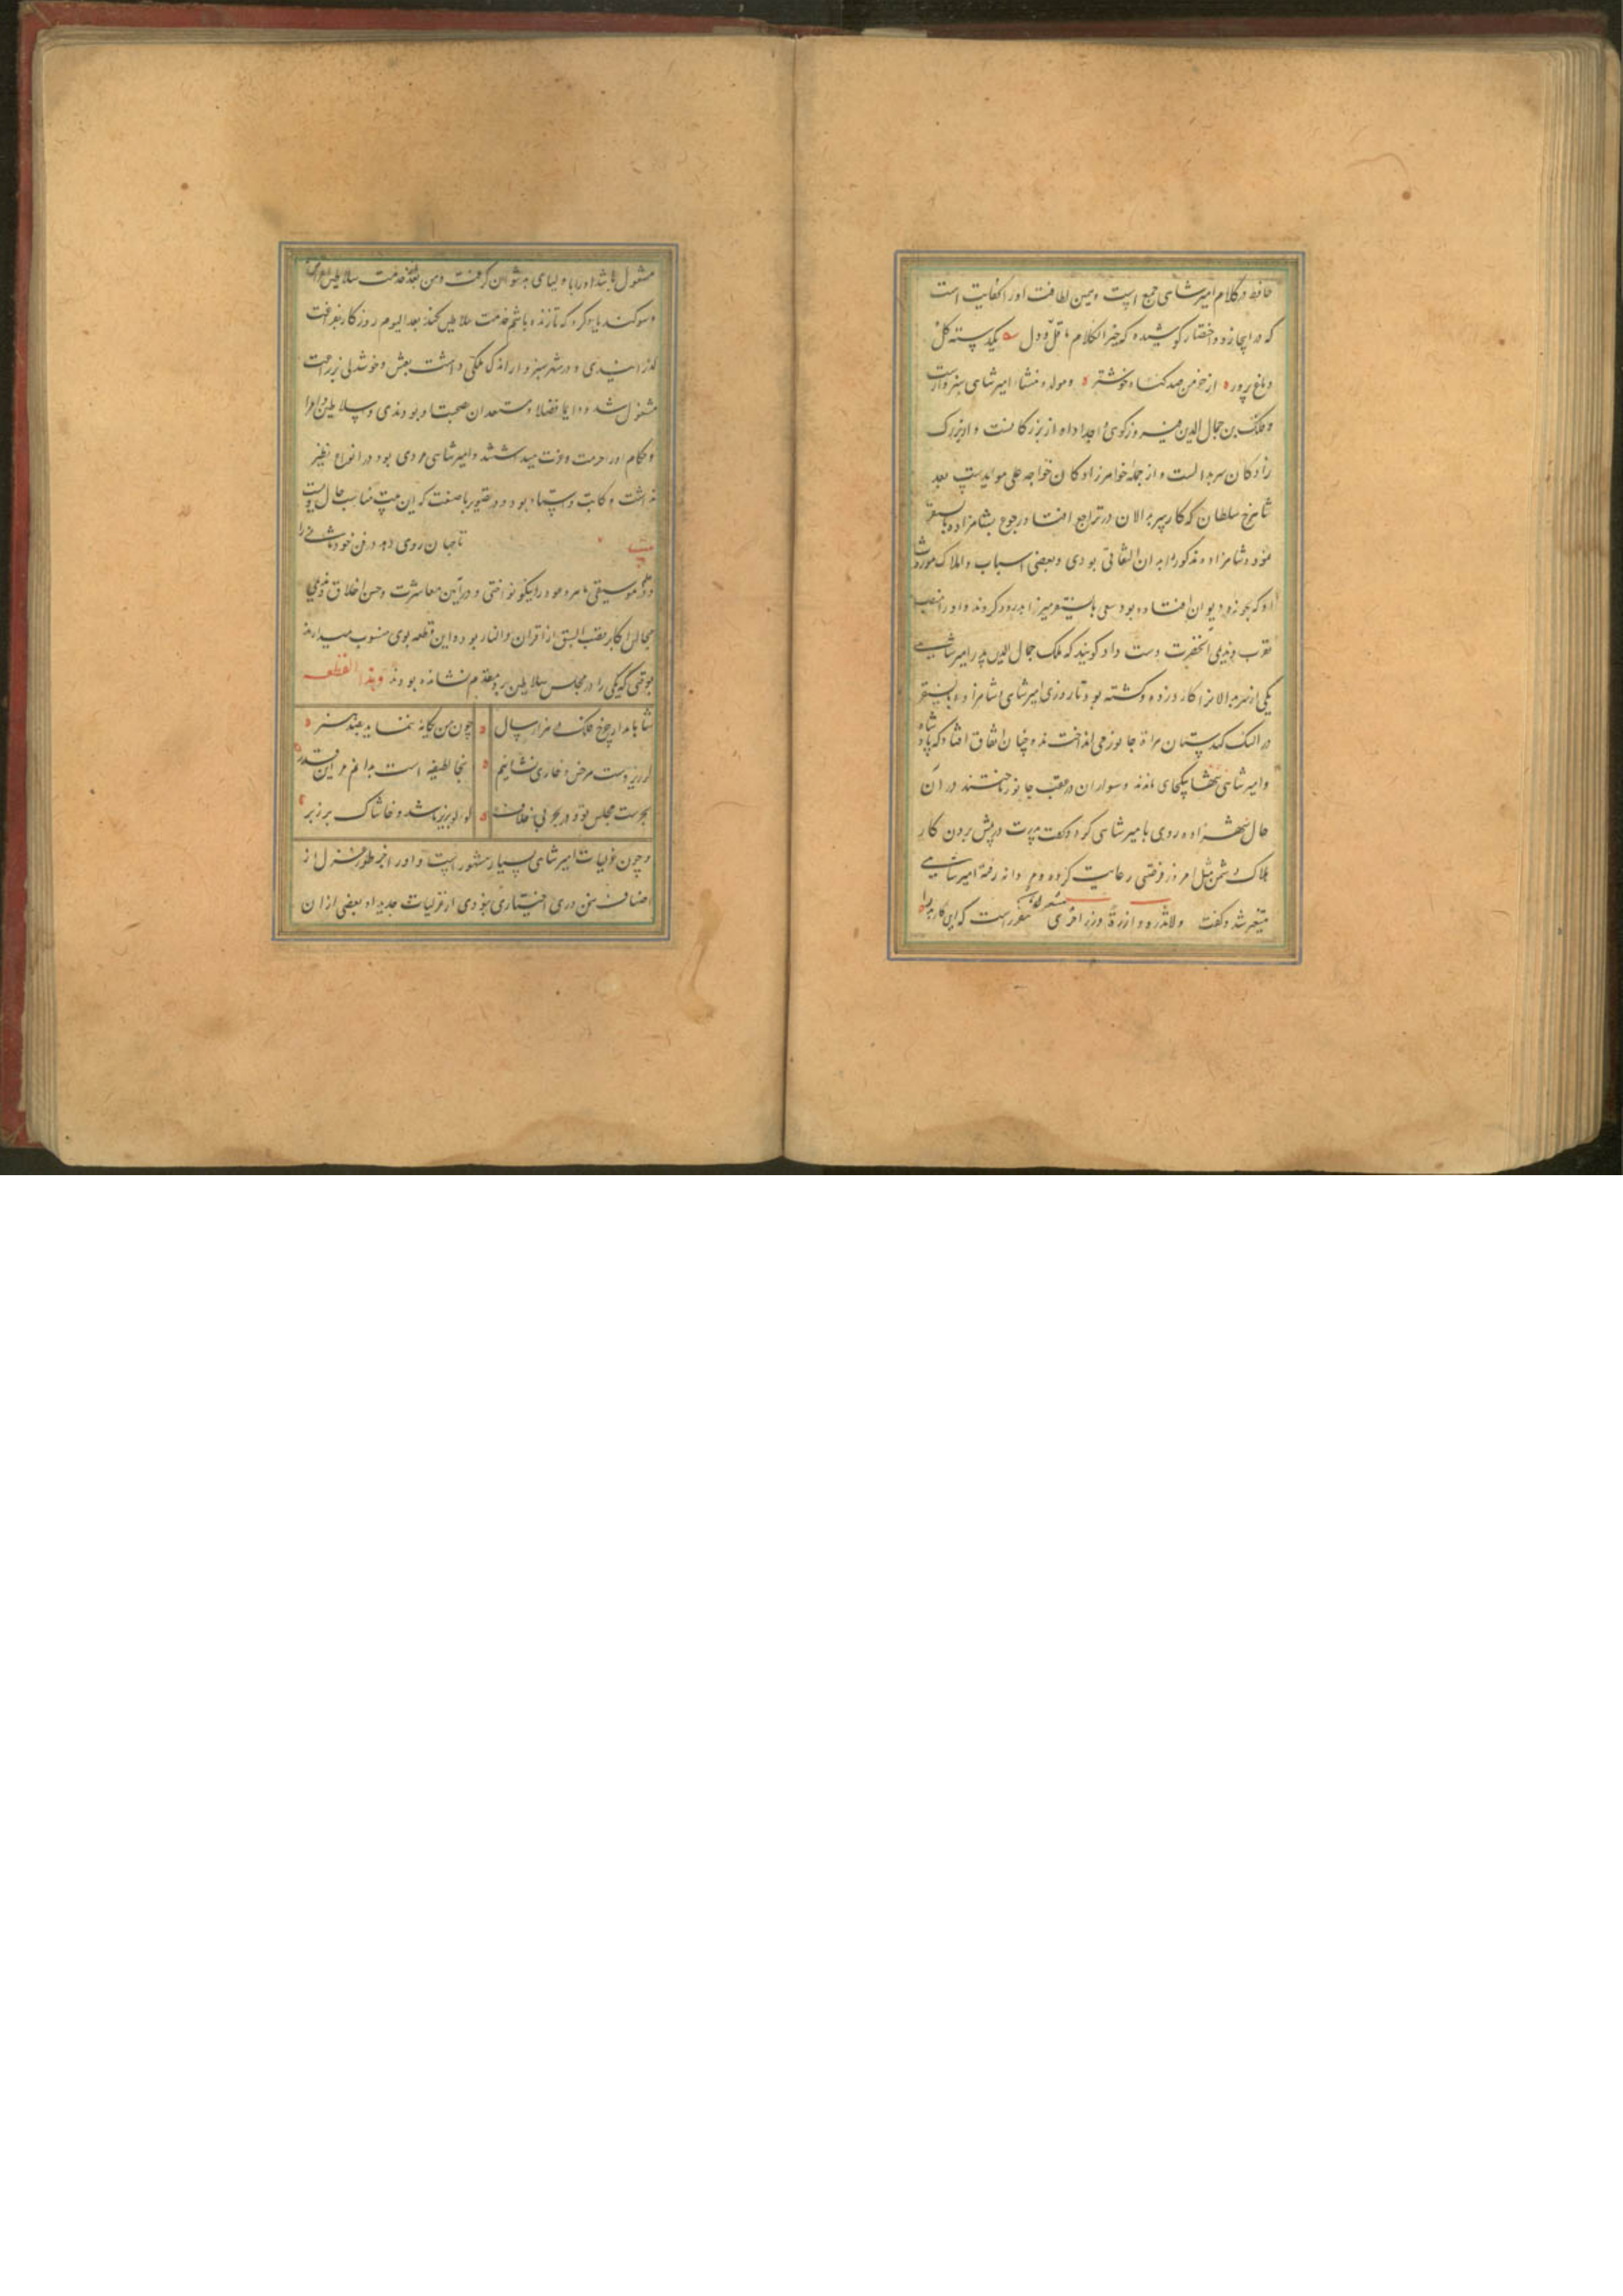 حافظ در کلام امیر شاهی جمع است و همین لطافت او را کفایت است
که در ایجاز و اختصار کوشیده که خیر الکلام ما قل و دل یکدسته کل
دماغ پرور از خرمن صد کیاه خوشتر و مولد و منشاء امیر شاهی سبزوارست
و ملک بن جمال الدین فیروزکوهی و اجداد او از بزرکانست و از بزرک
زادکان سربدالست و از جمله خواهرزادکان خواجه علی مویدست بعد
شاهرخ سلطان که کار سربدالان در تراجع افتاد رجوع بشاهزاده بایسنقر
نمود و شاهزاده مذکور را بدان التفاتی بودی و بعضی اسباب و املاک موروث
او که بحوزه دیوان افتاده بود بسعی بایسنقر میرزا بدو رد کردند و او را منصب
تقرب و ندیمی آنحضرت دست داد کویند که ملک جمال الدین پدر امیر شاهی
یکی از سربدالانرا کارد زده و کشته بود تا روزی امیر شاهی و شاهزاده بایسنقر
در النک کهدستان هراة جانور می انداختند و چنان اتفاق افتاد که پادشاه
و امیر شاهی تنها یکجای ماندند و سواران در عقب جانور تاختند در آن
حال شهزاده روی با میر شاهی کرد و کفت پدرت در پیش بردن کار
هلاک دشمن مثل امروز فرصتی رعایت کرده و مردانه رفته امیر شاهی
متغیر شد و کفت ولا تزر وازرة وزر اخری مقررست که این کار پدر را
مشغول باشد او را با اولیای بد نتوان کرفت و من بعد خدمت سلاطین
و سوکند یاد کرد که تا زنده باشم خدمت سلاطین نکند بعد الیوم روزکار بفراغت
کذرانیدی و در شهر سبزوار اندک ملکی داشت بعیش و خوشدلی بزراعت
مشغول شد و دایما فضلا و مستعدان صحبت او بودندی و سلاطین و امرا
و حکام او را حرمت و عزت میداشتند و امیر شاهی مردی بود در انواع هنر نظیر
نداشت و کاتب و استاد بود و در تصویر باصفت که این بیت مناسب حال اوست
بیت تا جهان روی در فن خود
و در علم موسیقی ماهر و عود را نیکو نواختی و در آیین معاشرت و حسن اخلاق و ندیمی
مجالس اکابر اسبق از اقران و النار بوده و این قطعه بوی منسوب میدارند
بوقتی که یکی را در مجلس سلاطین برو مقدم نشانده بودند وهذا القطعه
شاها مدار چرخ فلک در هزار سال چون من یکانه ننماید بصد هنر
کر زیر دست هر خس و خاری نشانیم اینجا لطیفه است بدانم من این قدر
بحرست مجلس تو و در بحر بی خلاف لؤلؤ بزیر باشد و خاشاک بر زبر
و چون غزلیات امیر شاهی بسیار مشهور است و او را بجز طور غزل از
اصناف سخن وری اختیاری نبودی از غزلیات جدید او بعضی از آن